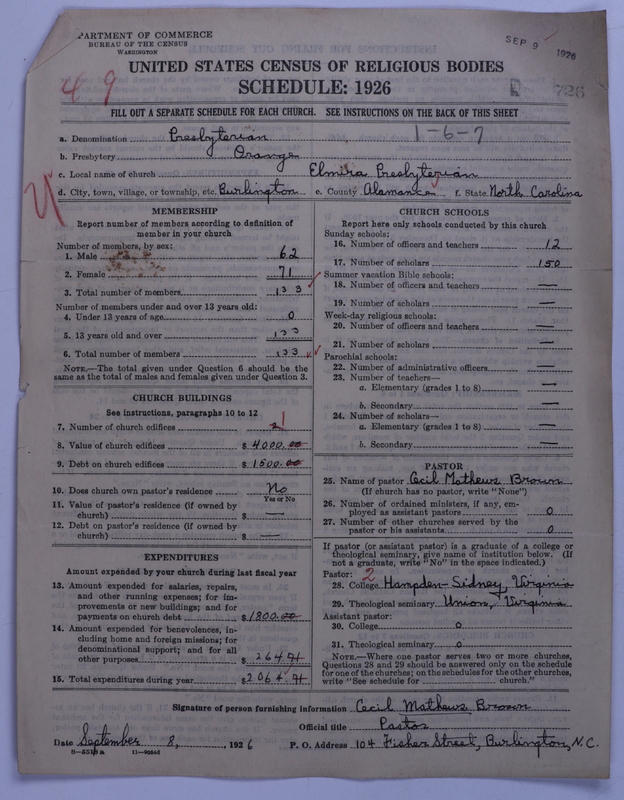 DEPARTMENT OF COMMERCE
BUREAU OF THE CENSUS
WASHINGTON
SEP 9 1926
UNITED STATES CENSUS OF RELIGIOUS BODIES
SCHEDULE: 1926
49
726
FILL OUT A SEPARATE SCHEDULE FOR EACH CHURCH. SEE INSTRUCTIONS ON THE BACK OF THIS SHEET
a. Denomination Presbyterian 1-6-7
b. Presbytery Orange
c. Local name of church Elmira Presbyterian
d. City, town, village, or township, etc. Burlington e. County Alamance f. State North Carolina
MEMBERSHIP
Report number of members according to definition of
member in your church
Number of members, by sex:
1. Male 62
2. Female 71
3. Total number of members 133
Number of members under and over 13 years old:
4. Under 13 years of age 0
5. 13 years old and over 133
6. Total number of members 133
NOTE.—The total given under Question 6 should be the
same as the total of males and females given under Question 3.
CHURCH BUILDINGS
See instructions, paragraphs 10 to 12
7. Number of church edifices 2 1
8. Value of church edifices $ 4000.00
9. Debt on church edifices $ 1500.00
10. Does church own pastor's residence No
Yes or No
11. Value of pastor's residence (if owned by
church) $ —
12. Debt on pastor's residence (if owned by
church) $ —
EXPENDITURES
Amount expended by your church during last fiscal year
13. Amount expended for salaries, repairs,
and other running expenses; for im-
provements or new buildings; and for
payments on church debt $ 1800.00
14. Amount expended for benevolences, in-
cluding home and foreign missions; for
denominational support; and for all
other purposes $ 264.71
15. Total expenditures during year $ 2064.71
CHURCH SCHOOLS
Report here only schools conducted by this church
Sunday schools:
16. Number of officers and teachers 12
17. Number of scholars 150
Summer vacation Bible schools:
18. Number of officers and teachers —
19. Number of scholars —
Week-day religious schools:
20. Number of officers and teachers —
21. Number of scholars —
Parochial schools:
22. Number of administrative officers —
23. Number of teachers—
a. Elementary (grades 1 to 8) —
b. Secondary —
24. Number of scholars—
a. Elementary (grades 1 to 8) —
b. Secondary —
PASTOR
25. Name of pastor Cecil Mathews Brown
(If church has no pastor, write "None")
26. Number of ordained ministers, if any, em-
ployed as assistant pastors 0
27. Number of other churches served by the
pastor or his assistants 0
If pastor (or assistant pastor) is a graduate of a college or
theological seminary, give name of institution below. (If
not a graduate, write "No" in the space indicated.)
Pastor: 2
28. College Hampden-Sidney, Virginia
29. Theological seminary Union, Virginia
Assistant pastor:
30. College 0
31. Theological seminary 0
NOTE.—Where one pastor serves two or more churches,
Questions 28 and 29 should be answered only on the schedule
for one of the churches; on the schedules for the other churches,
write "See schedule for ________ church."
Signature of person furnishing information Cecil Mathews Brown
Official title Pastor
Date September 8, 1926 P. O. Address 104 Fisher Street, Burlington, N.C.